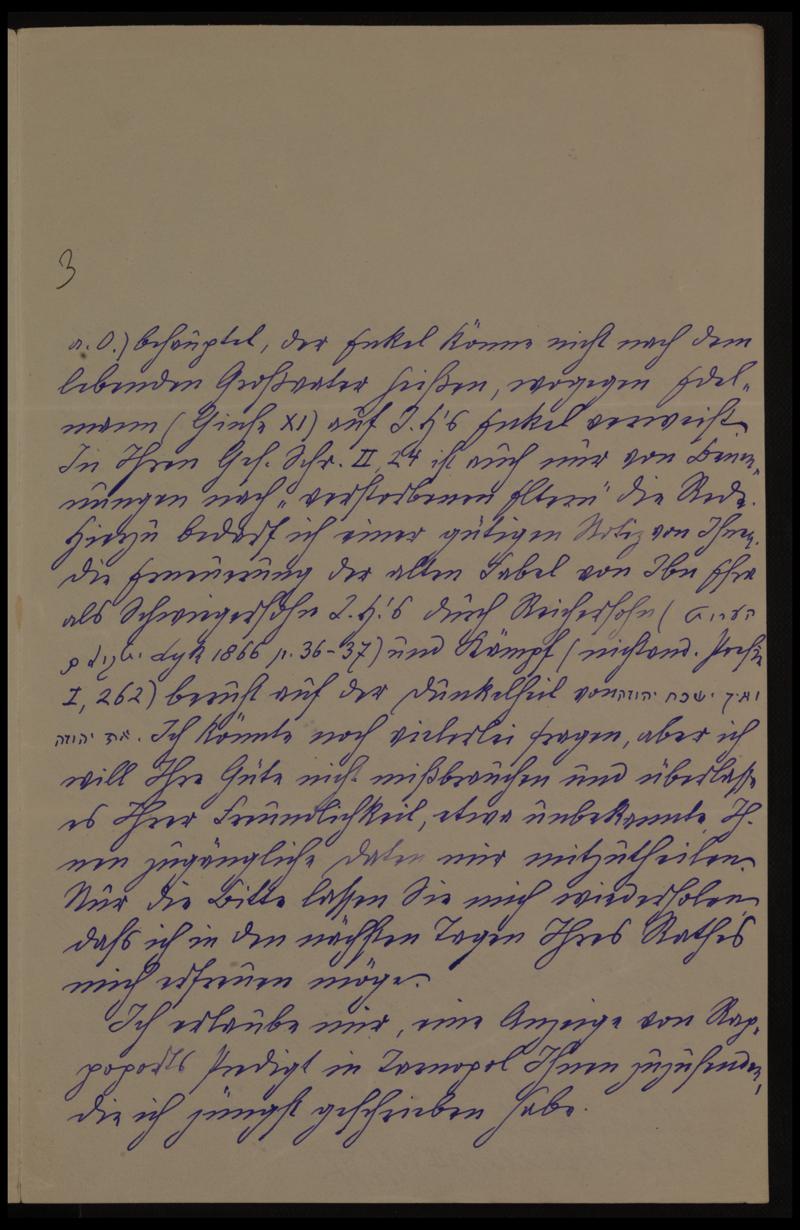 3
a. O.) behauptet, der Enkel könne nicht nach dem
lebenden Großvater heißen, wogegen Edel-
mann (Ginse XI) auf J. H.'s Enkel verweist.
In Ihren Ges. Schr. II, 24 ist auch nur von Benen-
nungen nach „verstorbenen Eltern" die Rede.
Hierzu bedarf ich einer gütigen Notiz von Ihnen.
Die Erneuerung der alten Fabel von Ibn Esra
als Schwiegersohn J. H.'s durch Reichersohn (
Lyk 1866 p. 36-37) und Kämpf (nichtand. Poesie
I, 262) beruht auf der Dunkelheit von ואיך ישכח יהודה
את יהודה. Ich könnte noch vielerlei fragen, aber ich
will Ihre Güte nicht mißbrauchen und überlasse
es Ihrer Freundlichkeit, etwa unbekannte, Ih-
nen zugängliche Daten mir mitzutheilen.
Nur die Bitte lassen Sie mich wiederholen,
daß ich in den nächsten Tagen Ihres Rathes
mich erfreuen möge.
Ich erlaube mir, eine Anzeige von Rap-
poports Predigt in Tarnopol Ihnen zuzusenden,
die ich jüngst geschrieben habe.